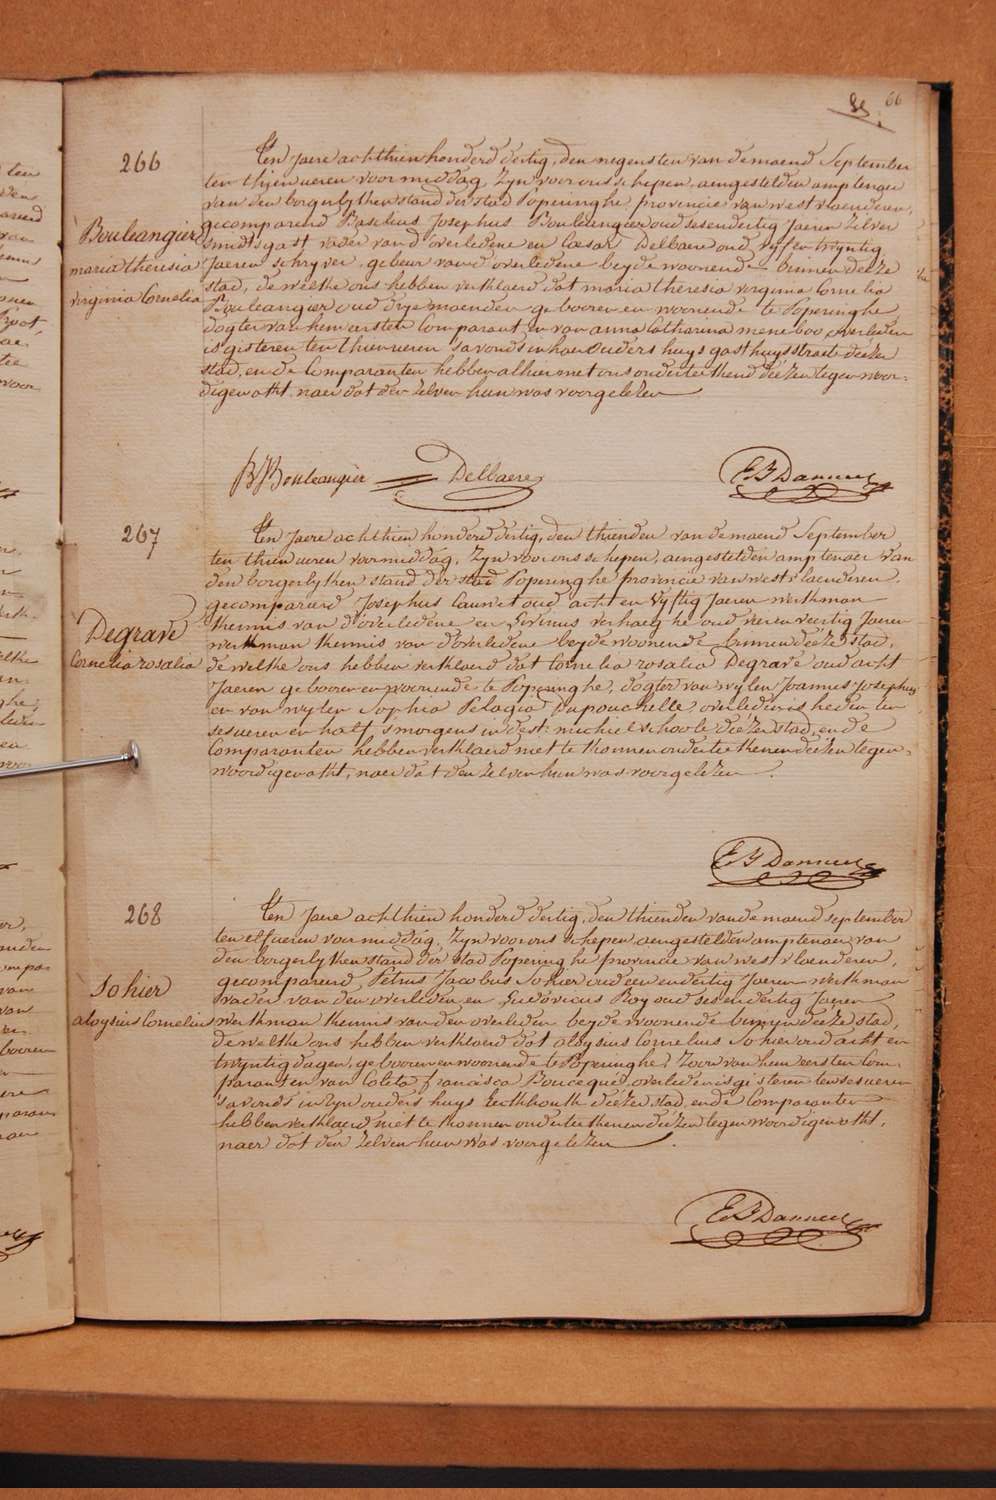 66
266
Bouleangier
maria theresia
virginia Cornelia
Ten Jaere achthien honderd dertig, den negensten van de maend September
ten thien ueren voormiddag, Zyn voor ons schepen, aengestelden amptenaer
van den borgerlyken stand der stad Poperinghe provincie van westvlaenderen,
gecompareerd Basilius Josephus Bouleangier oud sesendertig Jaeren Zilver
smidtsgast vader van d'overledene en Cæsar Delbaere oud vyf en twyntig
Jaeren schryver gebeur van d'overledene beyde woonende binnen deeze
stad, de welke ons hebben verklaerd dat maria theresia virginia Cornelia
Bouleangier oud drye maenden gebooren en woonende te Poperinghe,
dogter van hem eersten Comparant en van anna Catharina meneboo overleden
is gisteren ten thien ueren savonds in haer ouders huys gasthuysstraete deezer
stad, en de Comparanten hebben alhier met ons onderteekend deezen tegenwoor-
digen akt, naer dat den zelven hun was voorgelezen
BJBouleangier Delbaere
267
Degrave
Cornelia rosalia
Ten Jaere achthien honderd dertig, den thienden van de maend September
ten thien ueren voormiddag, Zyn voor ons schepen, aengestelden amptenaer van
den borgerlyken stand der stad Poperinghe provincie van westvlaenderen,
gecompareerd Josephus Cauwet oud acht en vyftig Jaeren werkman
kennis van d'overledene en Livinus verhaeghe oud vier en veertig Jaeren
werkman kennis van d'overledene beyde woonende binnen deeze stad,
de welke ons hebben verklaerd dat Cornelia rosalia Degrave oud acht
Jaeren gebooren en woonende te Poperinghe, dogter van wylen Joannes Josephus
en van wylen Sophia Pelagia Dupouchelle overleden is heden ten
ses ueren en half s'morgens in de st: michielschoole deezer stad, en de
Comparanten hebben verklaerd niet te konnen onderteekenen deezen tegen-
woordigen akt, naer dat den zelven hun was voorgelezen
268
Sohier
aloysius Cornelius
Ten Jaere achthien honderd dertig, den thienden van de maend september
ten elf ueren voormiddag, Zyn voor ons schepen aengestelden amptenaer van
den borgerlyken stand der stad Poperinghe provincie van westvlaenderen,
gecompareerd Petrus Jacobus Sohier oud een en dertig Jaeren werkman
vader van den overleden en Ludovicus Roy oud ses en dertig Jaeren
werkman kennis van den overleden beyde woonende binnen deeze stad,
de welke ons hebben verklaerd dat aloysius Cornelius Sohier oud acht en
twyntig dagen, gebooren en woonende te Poperinghe, Zoon van hem eersten Com-
parant en van Coleta francisca Boucequé, overleden is gisteren ten ses ueren
s'avonds in zyn ouders huys Eeckhoutk deezer stad, en de Comparanten
hebben verklaerd niet te konnen onderteekenen deezen tegenwoordigen akt,
naer dat den zelven hun was voorgelezen